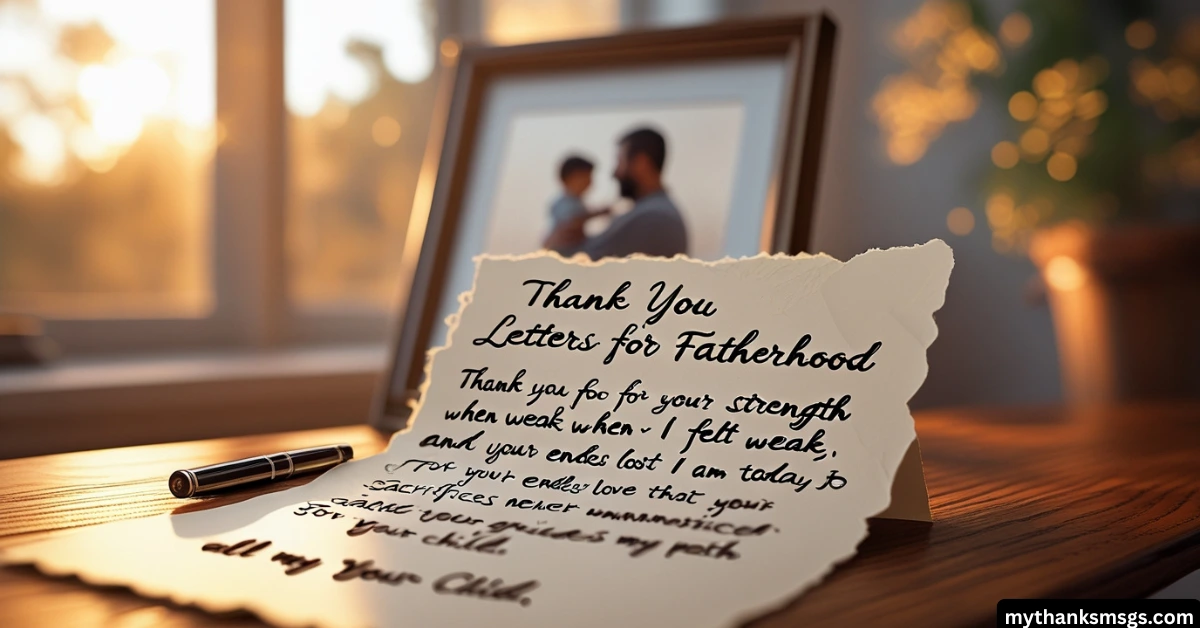 Thank You
Letters for Fatherhood
Thank you foo for your strength
when weak when - I felt weak,
and your endes lost I am today jo
for your endes love that your
sacrifices never
your guides my path
For your child.
all my Your Child.
mythanksmsgs.com